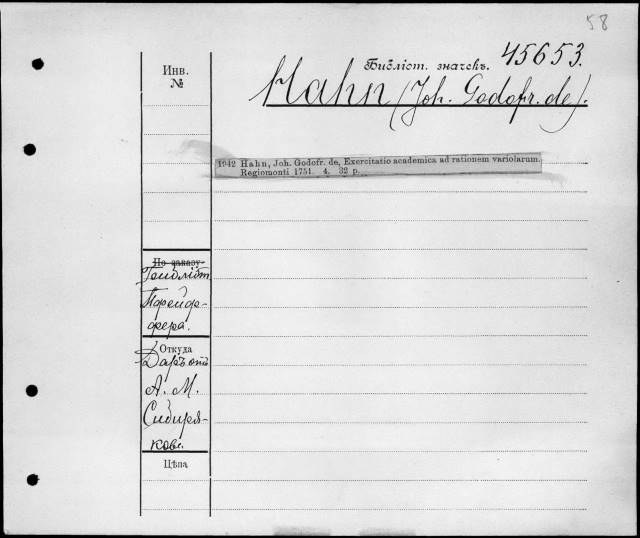 58
Инв.
№
Библіот. значекъ. 45653.
Hahn (Joh. Godofr. de).
1942 Hahn, Joh. Godofr. de, Exercitatio academica ad rationem variolarum.
Regiomonti 1751. 4. 32 p.
По заказу
Пфейф-
фера.
Откуда
Даръ отъ
А. М.
Сибиря-
кова.
Цѣна